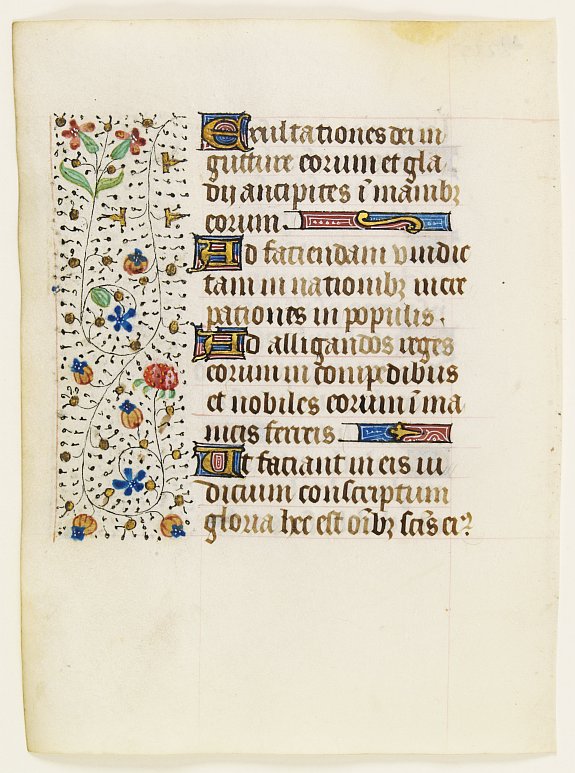 Exultationes dei in
gutture eorum et gla
dij ancipites ī manibꝫ
eorum.
Ad faciendam vindic
tam in nationibꝫ incre
pationes in populis.
Ad alligandos reges
eorum in cōpedibus
et nobiles eorum ī ma
nicis ferreis
Ut faciant in eis iu
dicium conscriptum
gloria hec est oībꝫ scīs ei⁹